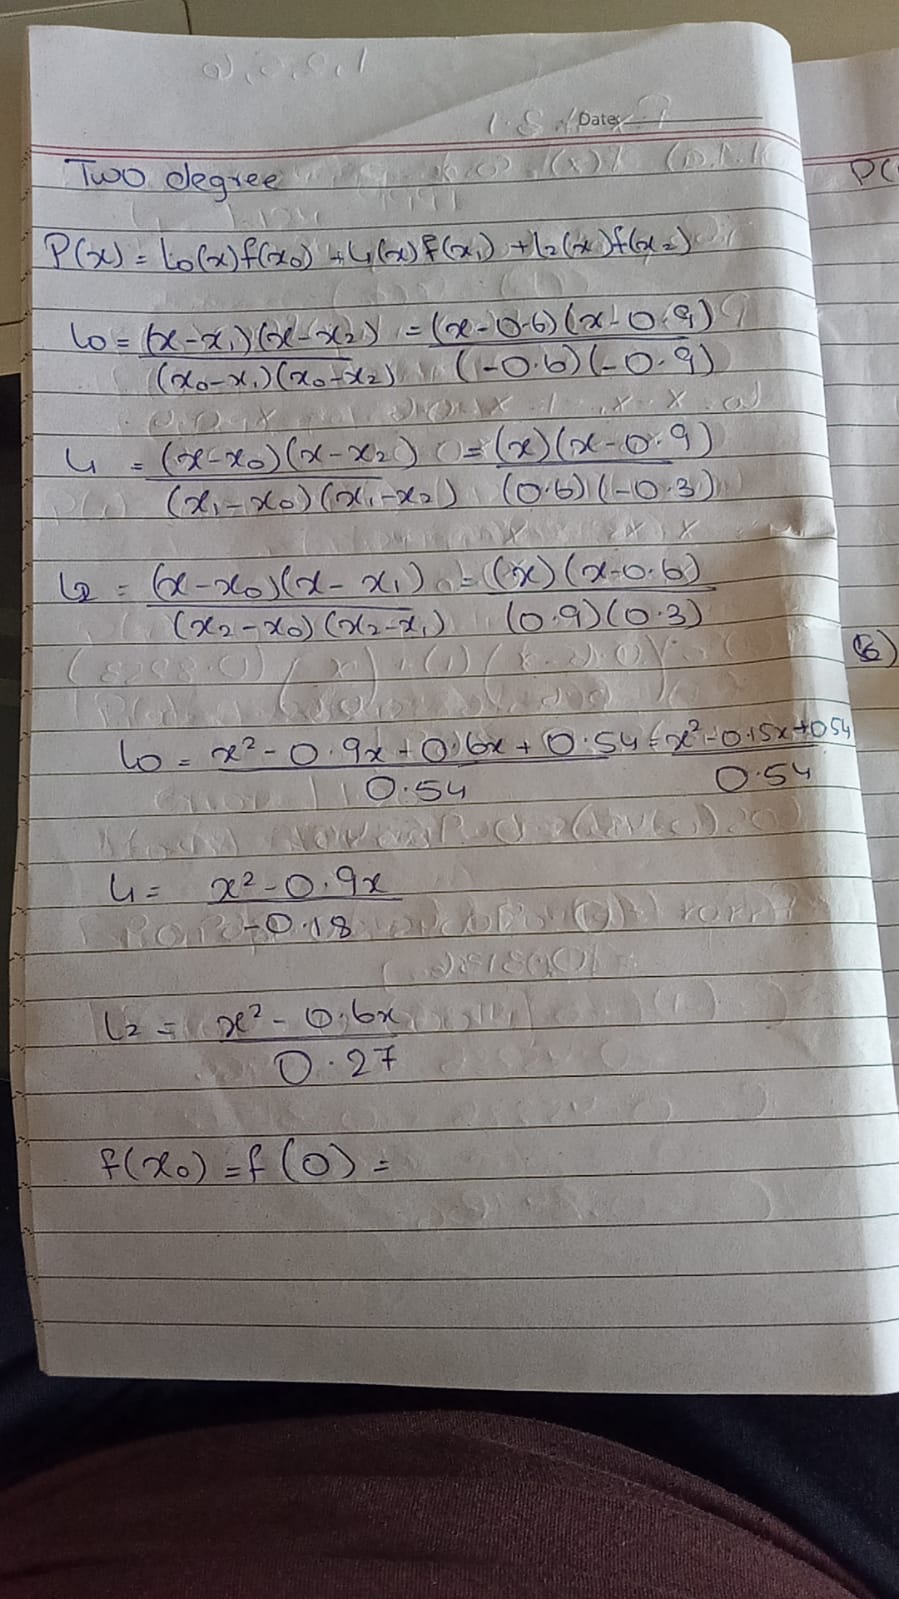 Date
Two degree
P(
P(x) = L0(x)f(x0) + L1(x)f(x1) + L2(x)f(x2)
L0 = (x-x1)(x-x2) = (x-0.6)(x-0.9)
(x0-x1)(x0-x2) (-0.6)(-0.9)
L1 = (x-x0)(x-x2) = (x)(x-0.9)
(x1-x0)(x1-x2) (0.6)(-0.3)
L2 = (x-x0)(x-x1) = (x)(x-0.6)
(x2-x0)(x2-x1) (0.9)(0.3)
L0 = x²-0.9x+0.6x+0.54 = x²-0.15x+054
0.54 0.54
L1 = x²-0.9x
-0.18
L2 = x²-0.6x
0.27
f(x0) = f(0) =